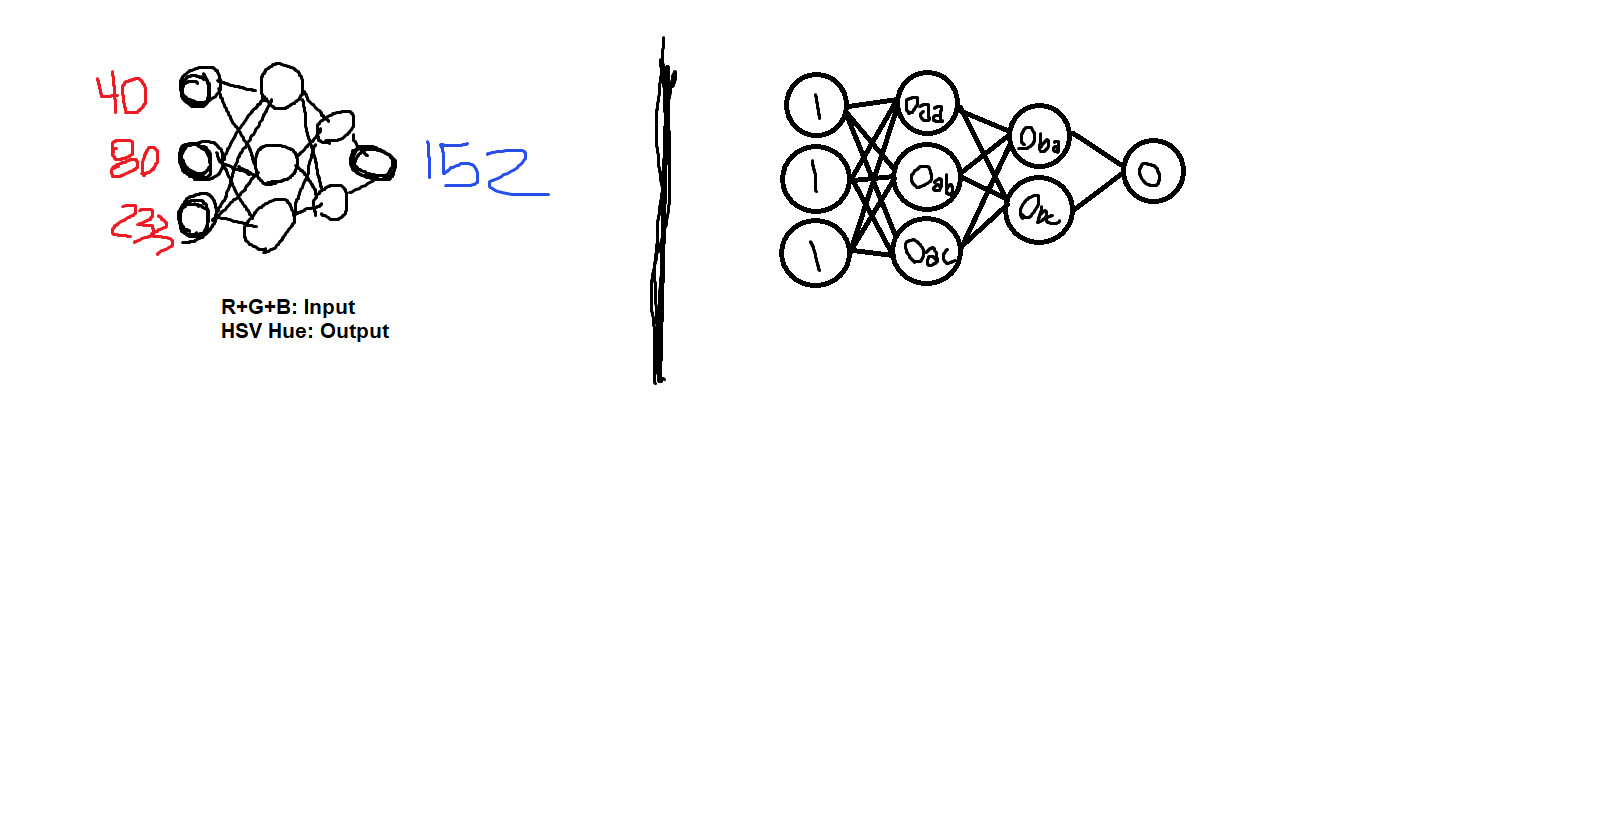 40
80
233
152
R+G+B: Input
HSV Hue: Output
1
1
1
Oaa
Oab
Oac
Oba
Obc
O